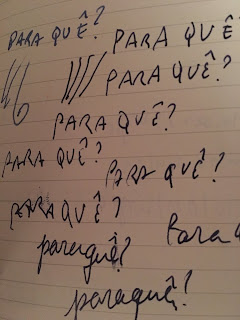 PARA QUÊ?
PARA QUÊ
PARA QUÊ?
PARA QUÊ?
PARA QUÊ?
PARA QUÊ?
PARA QUÊ?
Para
paraquê?
paraquê?